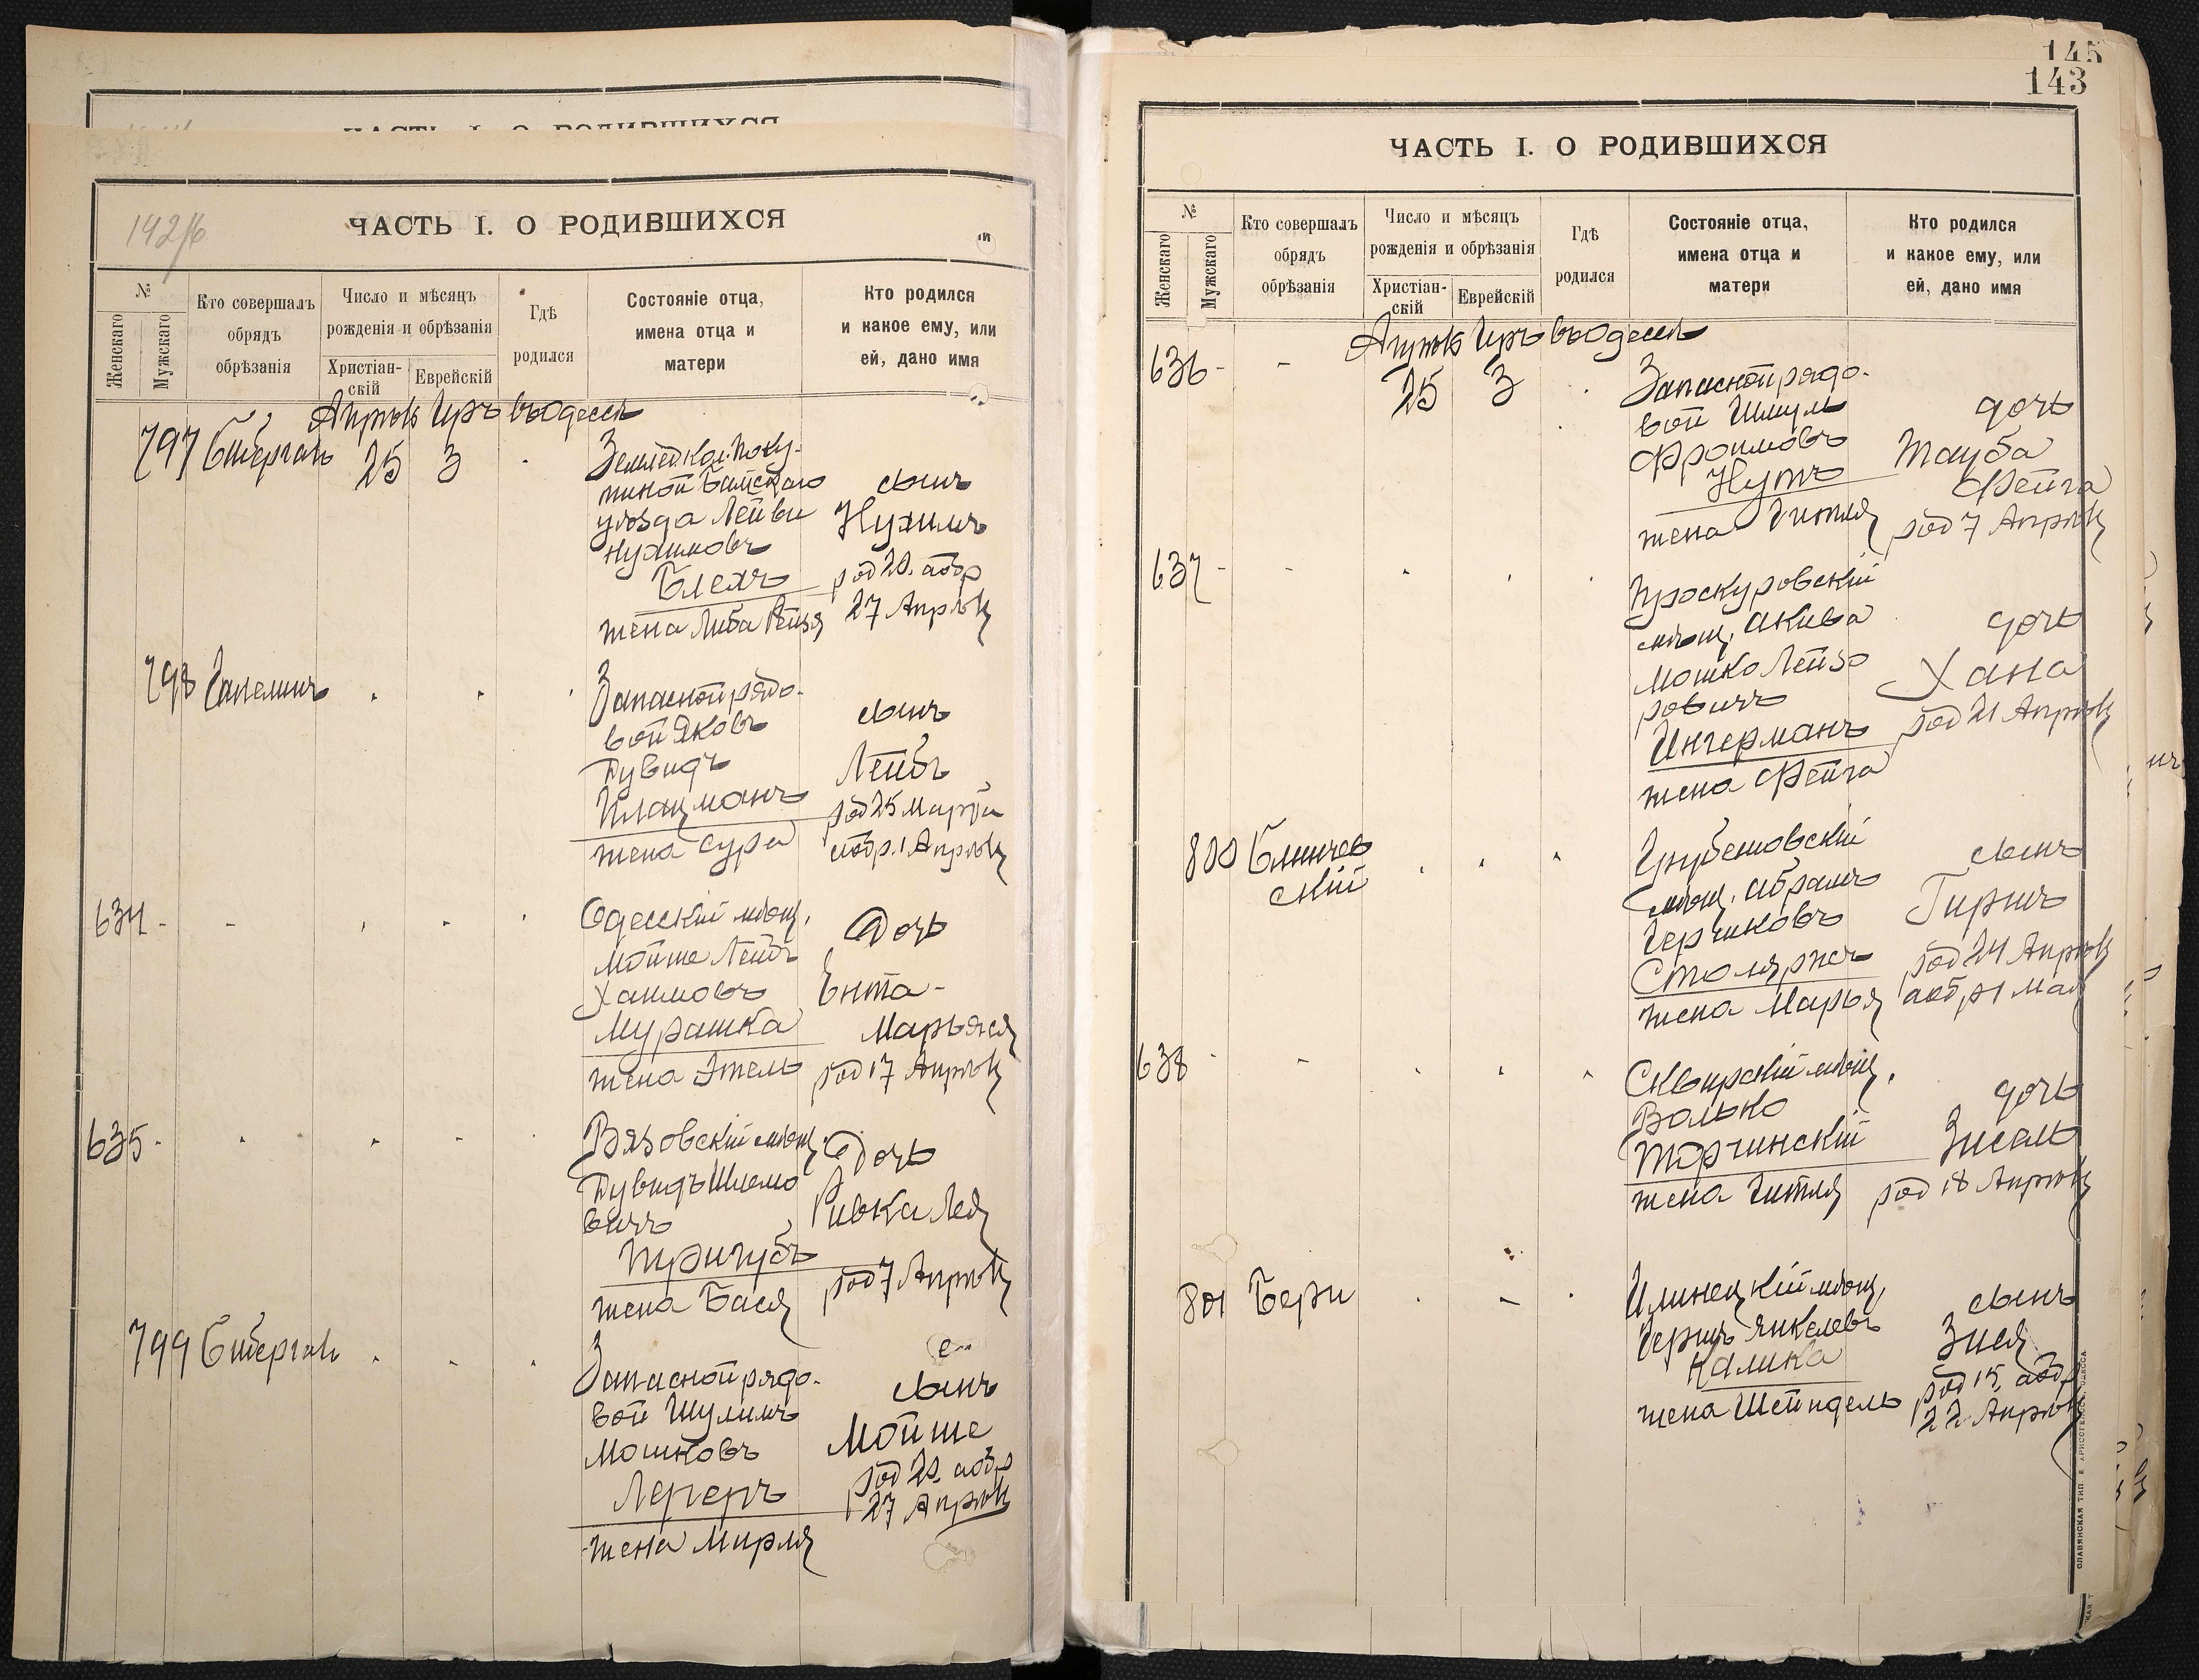 ЧАСТЬ I. О РОДИВШИХСЯ
142/б
ЧАСТЬ I. О РОДИВШИХСЯ
№
Женскаго
Мужскаго
Кто совершалъ
обрядъ
обрѣзанія
Число и мѣсяцъ
рожденія и обрѣзанія
Христіан-
скій
Еврейскій
Гдѣ
родился
Состояніе отца,
имена отца и
матери
Кто родился
и какое ему, или
ей, дано имя
Апрѣль Иръ въ Одессѣ
797
25 3
Землед. кол. Поку-
уѣзда Лейви
Нухимовъ
Блехъ
жена Либа Рейзя
сынъ
Нухимъ
род 20. аобр
27 Апрѣля
798
Запасной рядо-
вой Яковъ
Дувидъ
Плацманъ
жена Сура
сынъ
Лейбъ
род 25 Марта
аобр. 1 Апрѣля
634 -
Одесскій мѣщ.
Мойше Лейбъ
Хаимовъ
Мурашка
жена Этель
Дочь
Ента-
Марьяся
род 17 Апрѣля
635 -
Вязовскій мѣщ.
Дувидъ Шлемо
вичъ
Тригубъ
жена Бася
Дочь
Ривка Лея
род 7 Апрѣля
799
Запасной рядо-
вой Шулимъ
Мошковъ
Лернеръ
жена Мирля
сынъ
Мойше
род 20. аобр
27 Апрѣля
145
143
ЧАСТЬ I. О РОДИВШИХСЯ
№
Женскаго
Мужскаго
Кто совершалъ
обрядъ
обрѣзанія
Число и мѣсяцъ
рожденія и обрѣзанія
Христіан-
скій
Еврейскій
Гдѣ
родился
Состояніе отца,
имена отца и
матери
Кто родился
и какое ему, или
ей, дано имя
Апрѣль Иръ въ Одессѣ
636 -
25 3
Запасной рядо-
вой Шмуль
Фроимовъ
Нутъ
жена Гитля
дочь
Тауба
Фейга
род 7 Апрѣля
637 -
Проскуровскій
мѣщ. Акива
Мошко Лейзо
ровичъ
Ингерманъ
жена Фейга
дочь
Хана
род 21 Апрѣля
800
скій
Грубешовскій
мѣщ. Абрамъ
Столяржъ
жена Марья
сынъ
Гиршъ
род 24 Апрѣля
аобр 1 Мая
638
Сквирскій мѣщ.
Волько
Торчинскій
жена Гитля
дочь
Зисель
род 18 Апрѣля
801 Бери
Илинецкій мѣщ.
Гершъ Янкелевъ
Калика
жена Шейндель
сынъ
Зися
род 15. аобр
22 Апрѣля